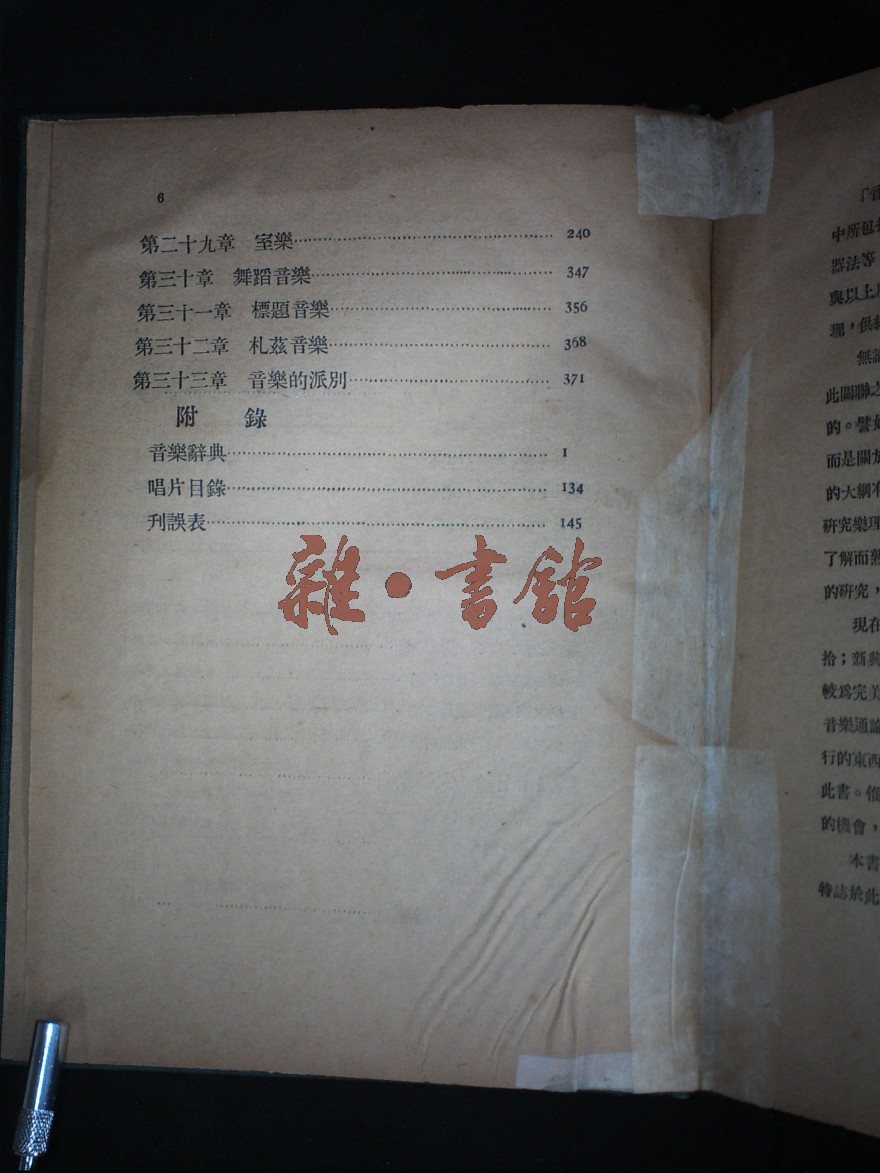 6
第二十九章 室樂 240
第三十章 舞蹈音樂 347
第三十一章 標題音樂 356
第三十二章 札茲音樂 368
第三十三章 音樂的派別 371
附 錄
音樂辭典 1
唱片目錄 134
刊誤表 145
雜·書館
中所包
器法等
與以上
理，供
無論
此關聯之
的。譬如
而是關於
的大綱不
研究樂理
了解而
的研究，
現在
拾；新興
較爲完美
音樂通論
行的東西
此書。惟
的機會，
本書
特誌於此